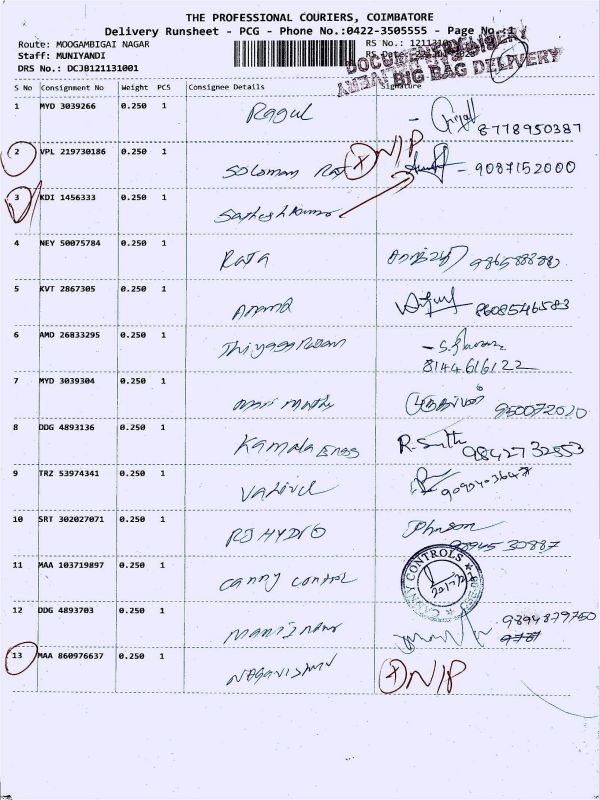 THE PROFESSIONAL COURIERS, COIMBATORE
Delivery Runsheet - PCG - Phone No.:0422-3505555 - Page No.:1
Route: MOOGAMBIGAI NAGAR
Staff: MUNIYANDI RS Date:
DRS No.: DCJB121131001
BIG BAG DELIVERY
S No Consignment No Weight PCS Consignee Details Signature
1 MYD 3039266 0.250 1 Ragul 8778950387
2 VPL 219730186 0.250 1 Soloman Raj X N/P 9087152000
3 KDI 1456333 0.250 1 Satheshkumar
4 NEY 50075784 0.250 1 Raja
5 KVT 2867305 0.250 1 Anand 8608546583
6 AMD 26833295 0.250 1 Thiyagarajan
8144616122
7 MYD 3039304 0.250 1
8 DDG 4893136 0.250 1 Kamala Engg 9842732553
9 TRZ 53974341 0.250 1 Vadivel
10 SRT 302027071 0.250 1 RJ HYDRO Johnson
30887
11 MAA 103719897 0.250 1 Canny control CANNY CONTROLS
12 DDG 4893703 0.250 1 9894879750
13 MAA 860976637 0.250 1 X N/P